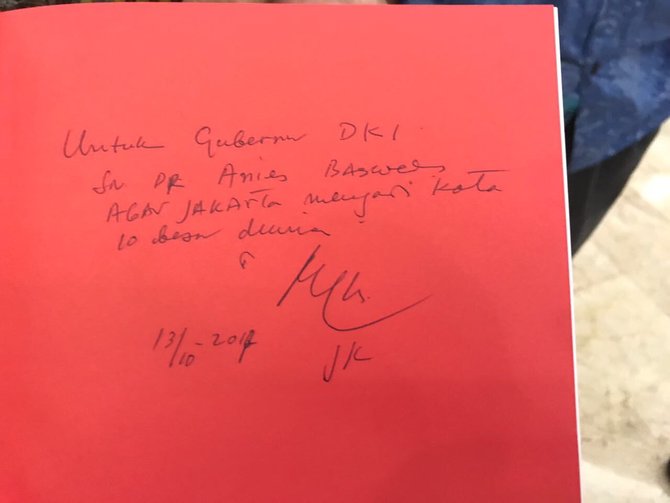 Untuk Gubernur DKI.
Sdr DR Anies Baswedan
AGAR JAKARTA menjadi Kota
10 besar dunia
13/10-2017
JK